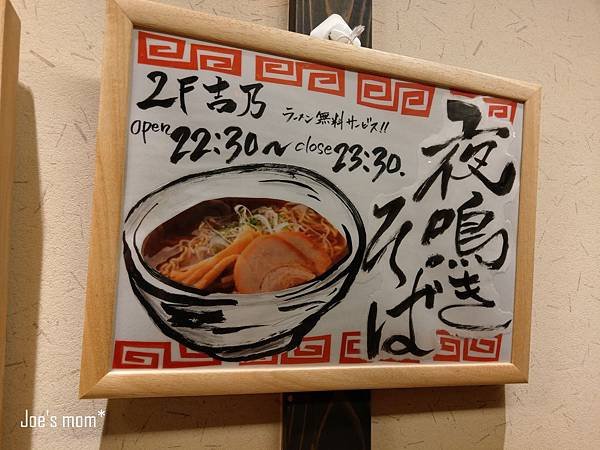 夜鳴き
そば
2F吉乃
ラーメン無料サービス!!
open 22:30〜close 23:30.
Joe's mom*